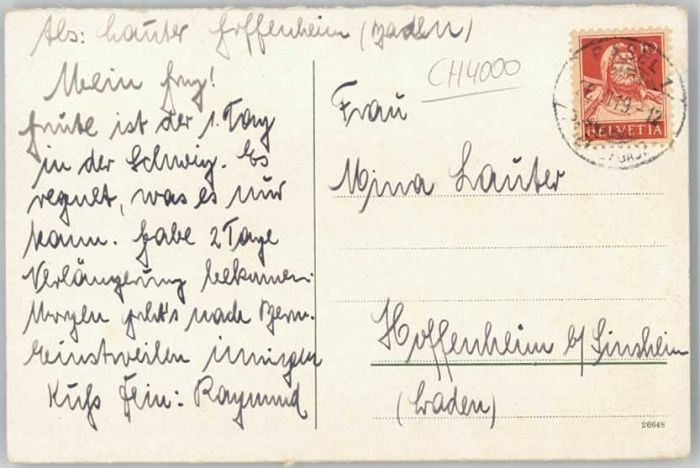 Abs: Lauter Hoffenheim (Baden)
Mein
Heute ist der 1. Tag
in der Schweiz. Es
regnet, was es nur
kann. Habe 2 Tage
Verlängerung bekommen.
Morgen geht's nach Bern.
Einstweilen innigen
Kuß Dein: Raymund
CH4000
Frau
Mina Lauter
Hoffenheim b/ Sinsheim
(Baden)
BASEL
HELVETIA
26648